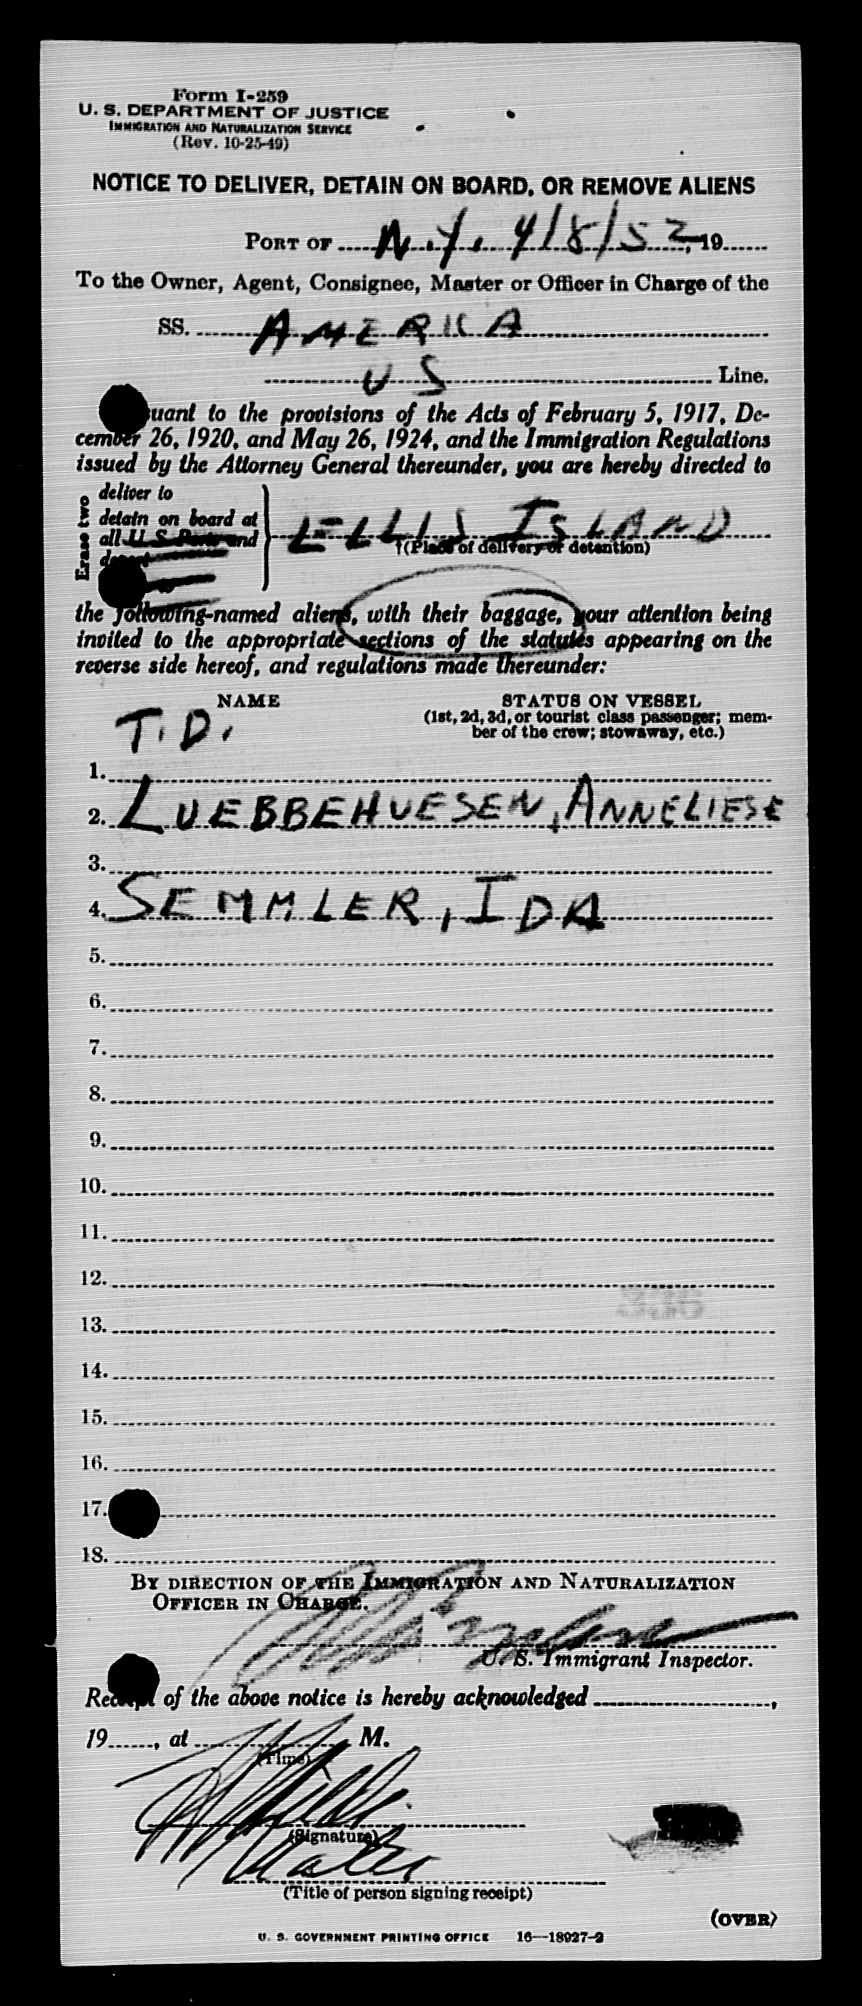 Form I-259
U. S. DEPARTMENT OF JUSTICE
IMMIGRATION AND NATURALIZATION SERVICE
(Rev. 10-25-49)
NOTICE TO DELIVER, DETAIN ON BOARD, OR REMOVE ALIENS
PORT OF N.Y. 4/8/52, 19
To the Owner, Agent, Consignee, Master or Officer in Charge of the
SS. AMERICA
US Line.
uant to the provisions of the Acts of February 5, 1917, De-
cember 26, 1920, and May 26, 1924, and the Immigration Regulations
issued by the Attorney General thereunder, you are hereby directed to
Erase two
deliver to
detain on board at
all U S Ports and
ELLIS ISLAND
†(Place of delivery or detention)
the following-named aliens, with their baggage, your attention being
invited to the appropriate sections of the statutes appearing on the
reverse side hereof, and regulations made thereunder:
NAME STATUS ON VESSEL
(1st, 2d, 3d, or tourist class passenger; mem-
ber of the crew; stowaway, etc.)
T.D.
1.
2. LUEBBEHUESEN, ANNELIESE
3.
4. SEMMLER, IDA
5.
6.
7.
8.
9.
10.
11.
12.
13.
14.
15.
16.
17.
18.
BY DIRECTION OF THE IMMIGRATION AND NATURALIZATION
OFFICER IN CHARGE.
U. S. Immigrant Inspector.
Receipt of the above notice is hereby acknowledged ,
19 , at M.
(Time)
(Signature)
(Title of person signing receipt)
(OVER)
U. S. GOVERNMENT PRINTING OFFICE 16—18927-2